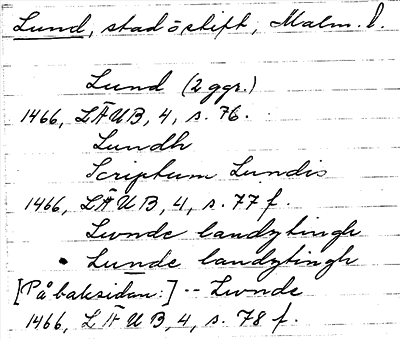 Lund, stad o stift, Malm. l.
Lund (2 ggr.)
1466, LÄUB, 4, s. 76.
Lundh
Scriptum Lundis
1466, LÄUB, 4, s. 77 f.
Lwnde landztingh
• Lunde landztingh
[På baksidan:] -- Lwnde
1466, LÄUB, 4, s. 78 f.